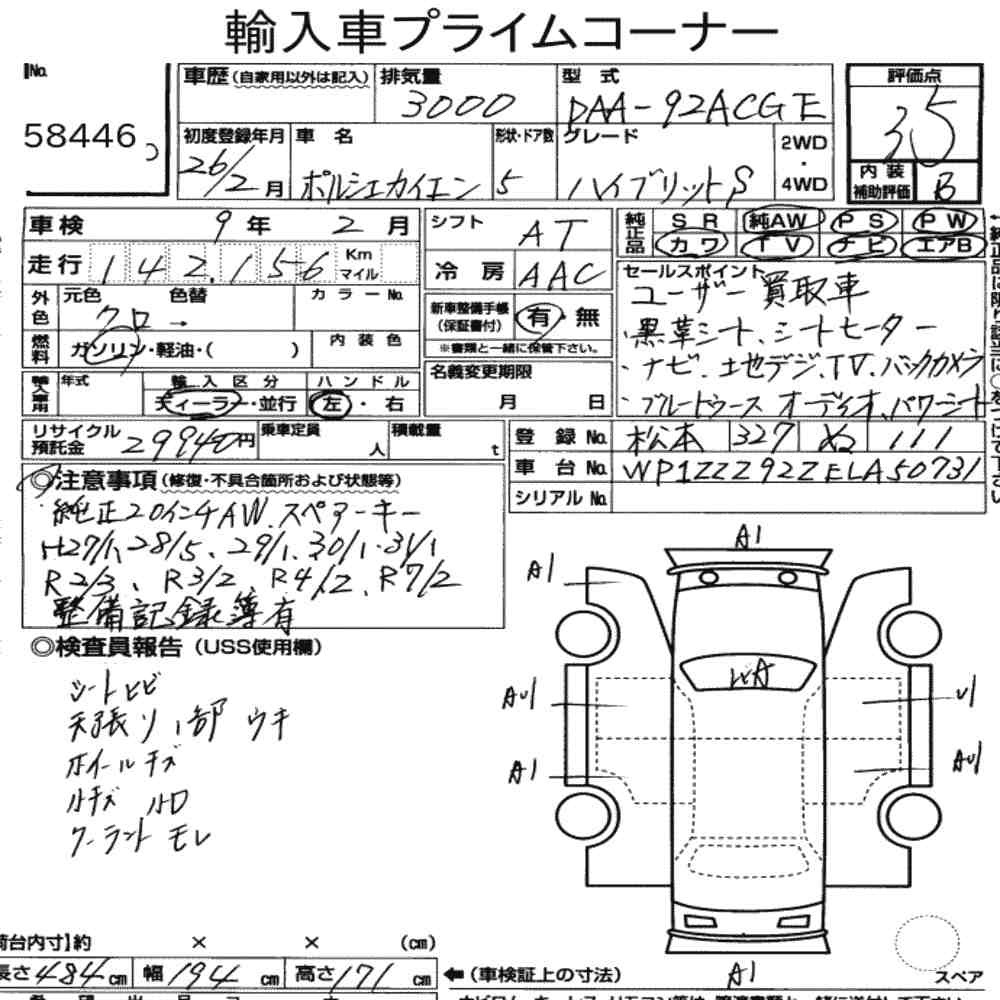 輸入車プライムコーナー
No.
58446
車歴(自家用以外は記入) 排気量 型式 評価点
3000 DAA-92ACGE 3.5
初度登録年月 車名 形状・ドア数 グレード 2WD・4WD
26/2月 ポルシェカイエン 5 ハイブリットS
内装補助評価 B
車検 9年 2月 シフト AT
純正品 SR 純AW PS PW
カワ TV ナビ エアB
走行 142,156 Km マイル 冷房 AAC
外色 元色 色替 カラーNo.
クロ→
新車整備手帳(保証書付) 有・無
※書類と一緒に保管下さい。
燃料 ガソリン・軽油・( ) 内装色
セールスポイント
ユーザー買取車
・黒革シート、シートヒーター
・ナビ、土地デジ、TV、バックカメラ
・ブルートゥースオーディオ、パワーシート
輸入車用 年式 輸入区分 ハンドル
ディーラー・並行 左・右
名義変更期限 月 日
リサイクル預託金 29940円 乗車定員 人 積載量 t
登録No. 松本 327 ぬ 111
車台No. WP1ZZZ92ZELA50731
シリアルNo.
◎注意事項(修復・不具合箇所および状態等)
純正20インチAW、スペアーキー
H27/1、28/5、29/1、30/1・31/1
R2/3、R3/2、R4/2、R7/2
整備記録簿有
◎検査員報告(USS使用欄)
シートヒビ
天張り1部ウキ
ホイールキズ
ルキズ ルロ
クーラントモレ
A1
A1
WA
AU1
U1
A1
AU1
A1
荷台内寸】約 × × (cm)
長さ484cm 幅194cm 高さ171cm
←(車検証上の寸法)
スペア